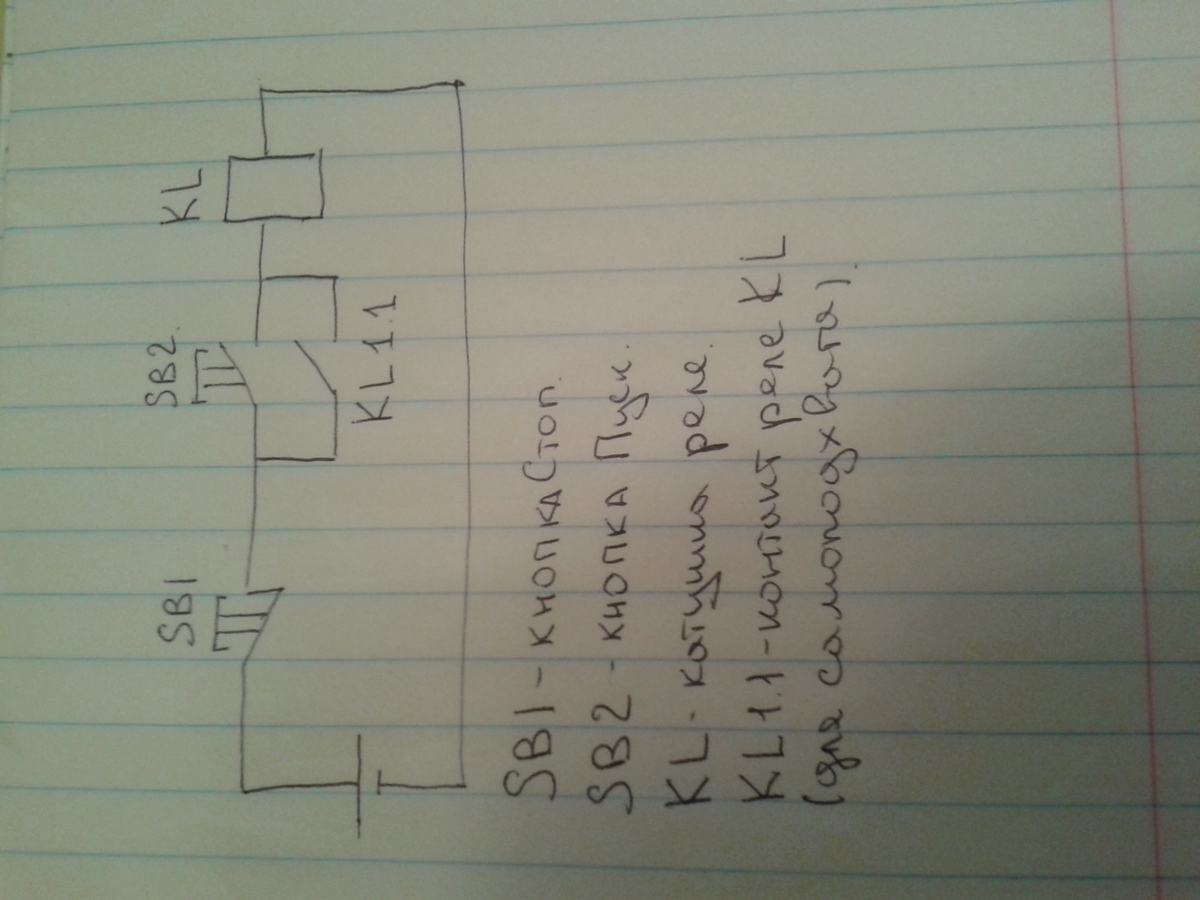 SB1
SB2.
KL
KL1.1
SB1 - кнопка Стоп.
SB2 - кнопка Пуск.
KL - катушка реле.
KL1.1 - контакт реле KL
(для самоподхвата).